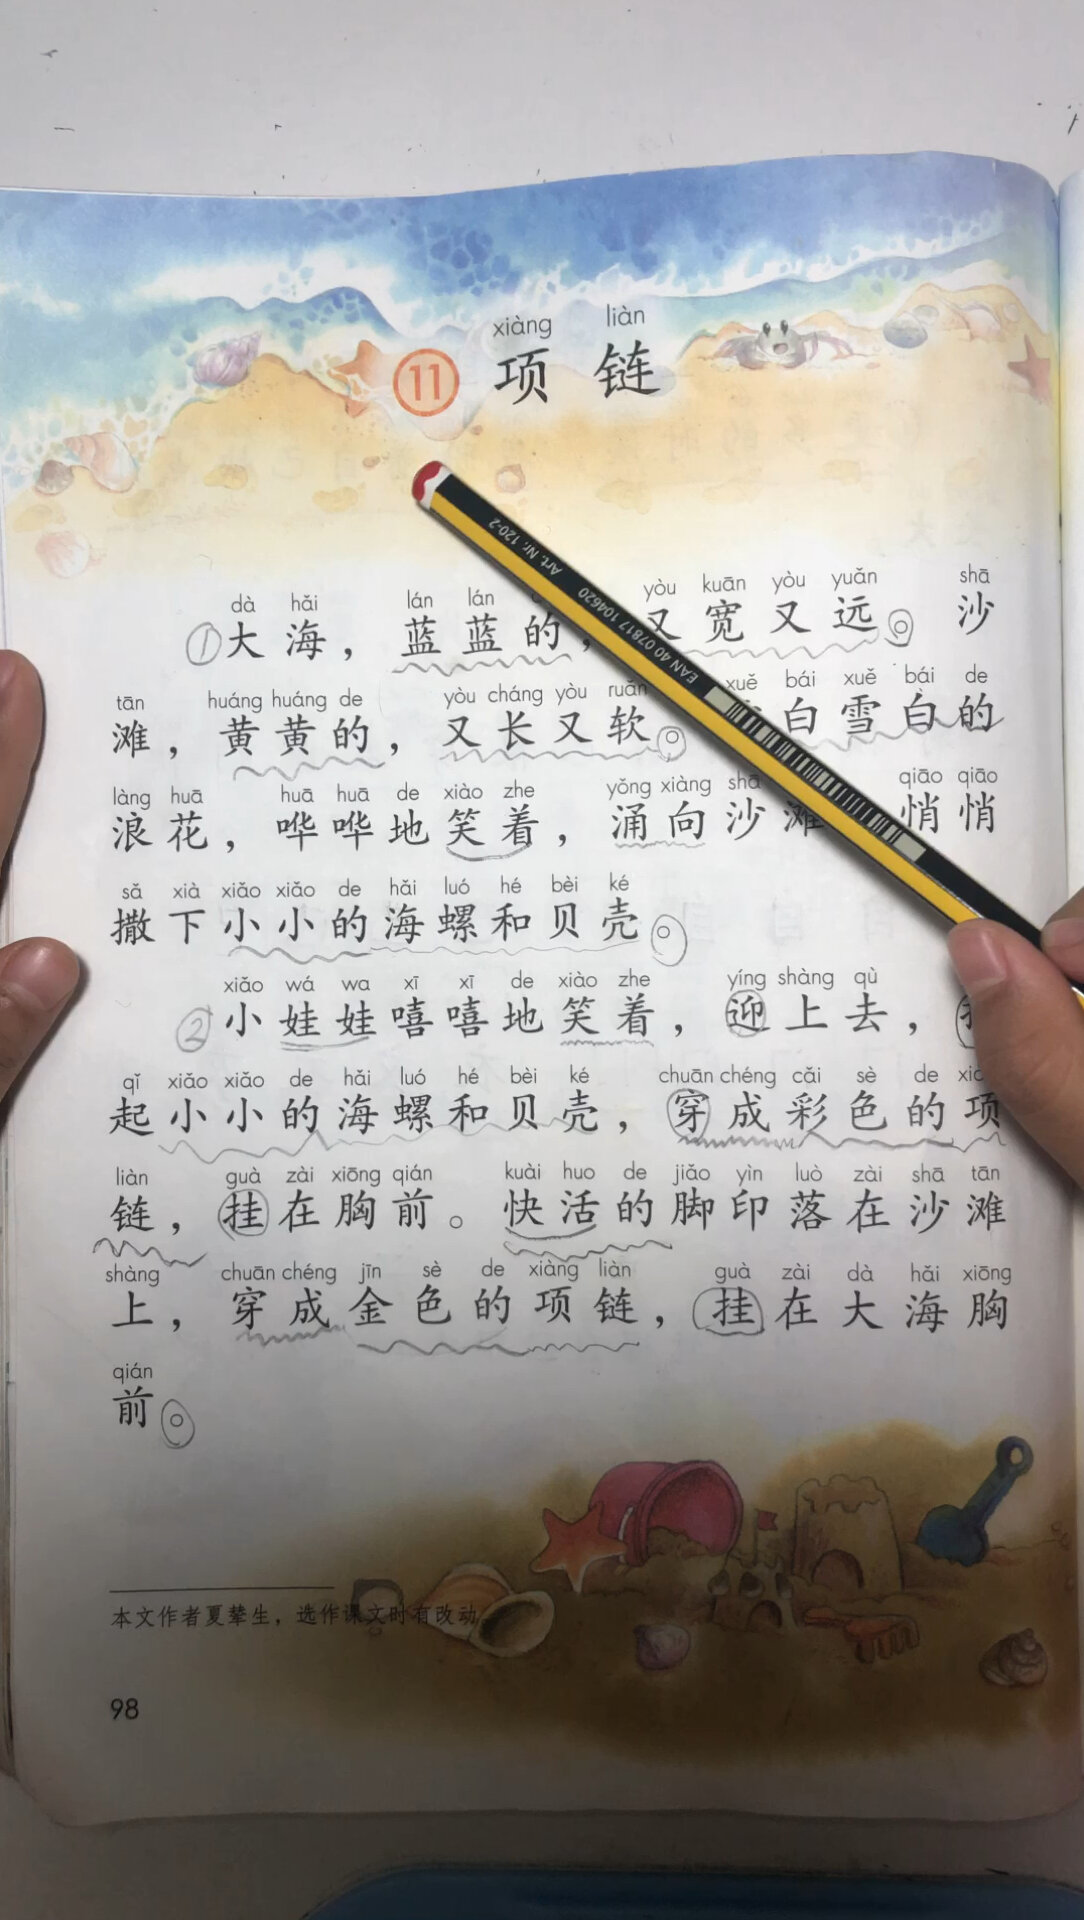 xiàng liàn
11 项 链
dà hǎi lán lán yòu kuān yòu yuǎn shā
①大海，蓝蓝的，又宽又远。沙
tān huáng huáng de yòu cháng yòu ruǎn xuě bái xuě bái de
滩，黄黄的，又长又软。白雪白的
làng huā huā huā de xiào zhe yǒng xiàng shā qiāo qiāo
浪花，哗哗地笑着，涌向沙滩悄悄
sǎ xià xiǎo xiǎo de hǎi luó hé bèi ké
撒下小小的海螺和贝壳。
xiǎo wá wa xī xī de xiào zhe yíng shàng qù
②小娃娃嘻嘻地笑着，迎上去，
qǐ xiǎo xiǎo de hǎi luó hé bèi ké chuān chéng cǎi sè de
起小小的海螺和贝壳，穿成彩色的项
liàn guà zài xiōng qián kuài huo de jiǎo yìn luò zài shā tān
链，挂在胸前。快活的脚印落在沙滩
shàng chuān chéng jīn sè de xiàng liàn guà zài dà hǎi xiōng
上，穿成金色的项链，挂在大海胸
qián
前。
本文作者夏辇生，选作课文时有改动
98
Art. Nr. 120-2
EAN 40 07817 104620